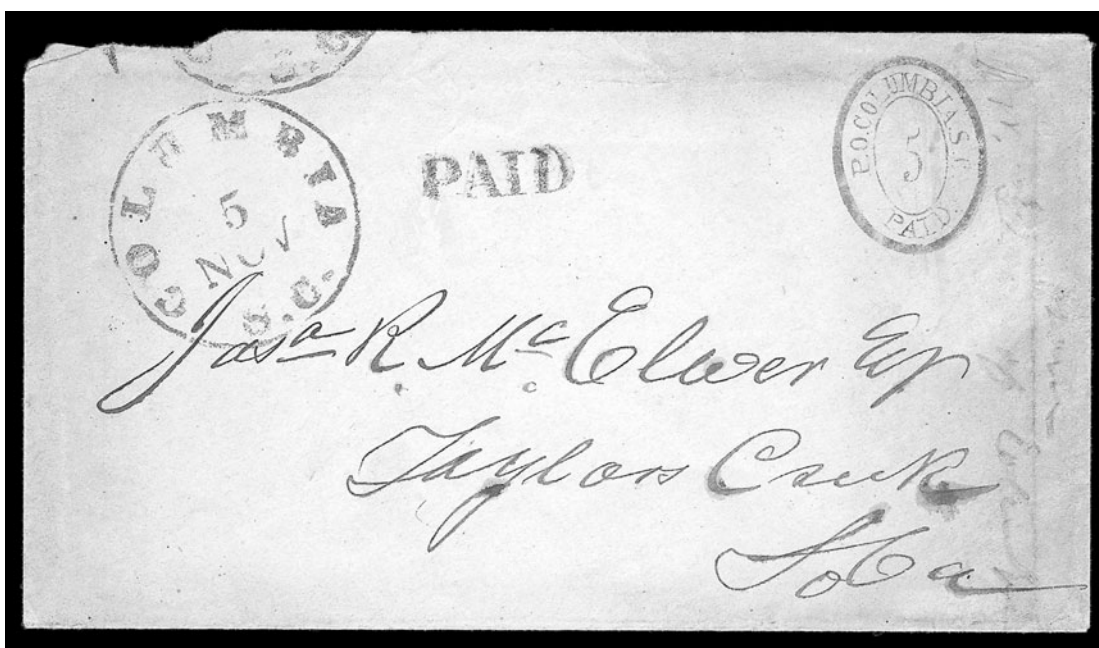 S.C.
COLUMBIA
5
NOV
S.C.
PAID
P.O. COLUMBIA. S.C.
5
PAID.
Jasᵃ R. Mᶜ Elwer Esq
Taylors Creek
So Ca